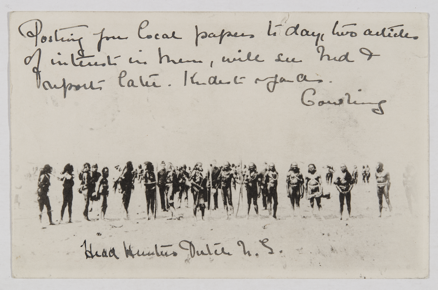 Posting you local papers to day, two articles
of interest in them, will see Ned &
reports later. Kindest regards.
Gowling
Head Hunters Dutch N. G.